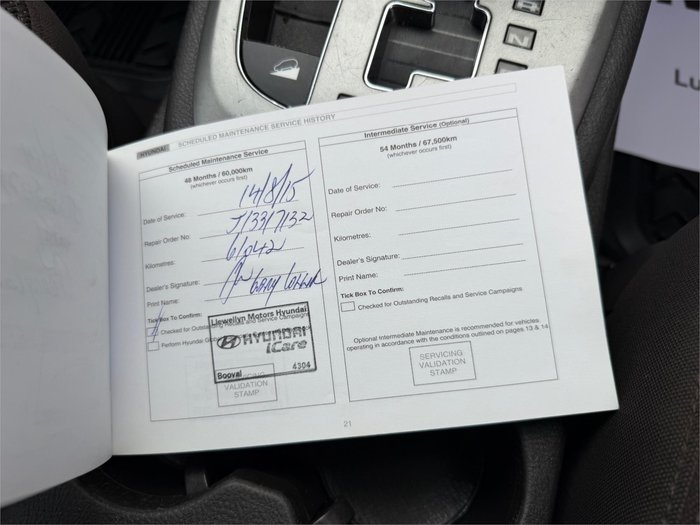 N
Lu
HYUNDAI SCHEDULED MAINTENANCE SERVICE HISTORY
Scheduled Maintenance Service
48 Months / 60,000km
(whichever occurs first)
Date of Service: 14/8/15
Repair Order No:
Kilometres: 61042
Dealer's Signature:
Print Name:
Tick Box To Confirm:
Checked for Outstanding Recalls and Service Campaigns
Perform Hyundai
Llewellyn Motors Hyundai
HYUNDAI
iCare
Booval 4304
SERVICING
VALIDATION
STAMP
Intermediate Service (Optional)
54 Months / 67,500km
(whichever occurs first)
Date of Service:
Repair Order No:
Kilometres:
Dealer's Signature:
Print Name:
Tick Box To Confirm:
Checked for Outstanding Recalls and Service Campaigns
Optional Intermediate Maintenance is recommended for vehicles
operating in accordance with the conditions outlined on pages 13 & 14
SERVICING
VALIDATION
STAMP
21